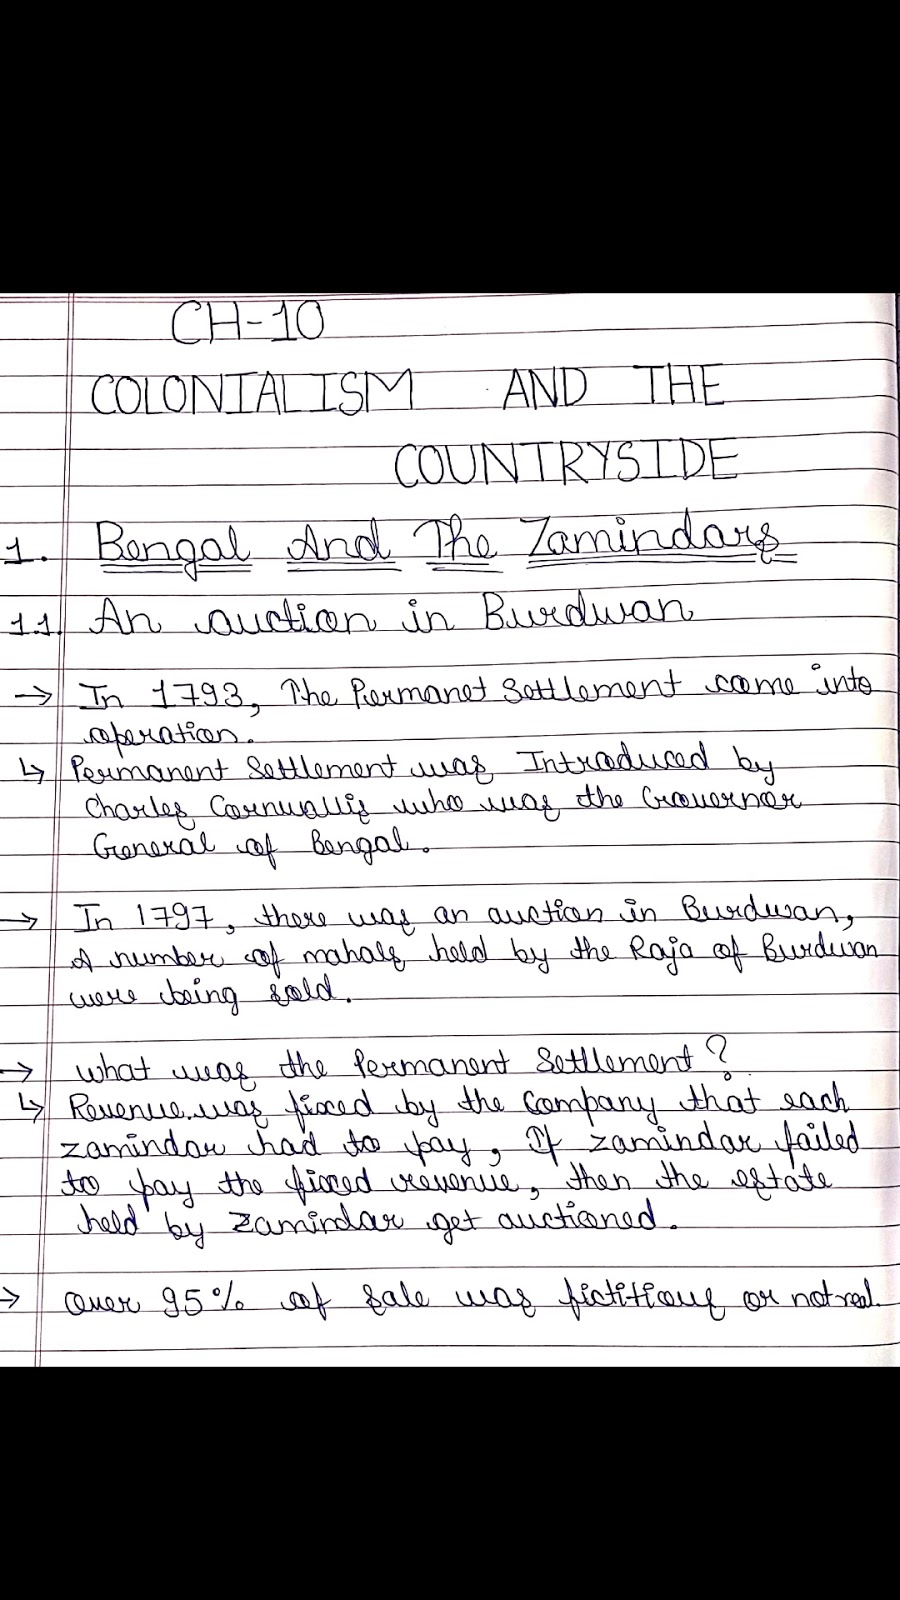 CH-10
COLONIALISM AND THE
COUNTRYSIDE
1. Bengal And The Zamindars
1.1. An auction in Burdwan
→ In 1793, The Permanet Settlement came into
operation.
↳ Permanent Settlement was Introduced by
Charles Cornwallis who was the Governor
General of Bengal.
→ In 1797, there was an auction in Burdwan,
A number of mahals held by the Raja of Burdwan
were being sold.
→ What was the Permanent Settlement?
↳ Revenue was fixed by the Company that each
zamindar had to pay, If zamindar failed
to pay the fixed revenue, then the estate
held by zamindar get auctioned.
→ Over 95% of sale was fictitious or not real.